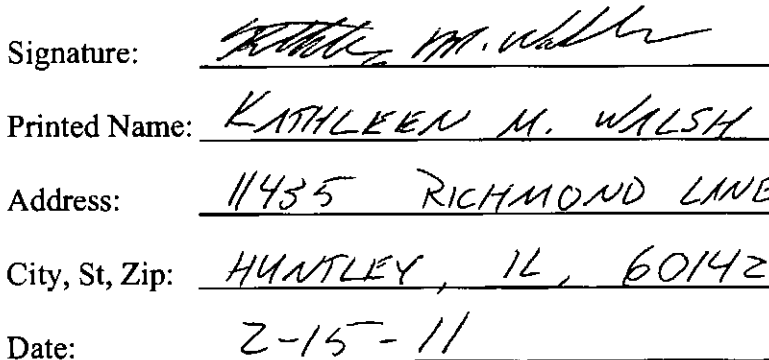 Signature: Kathleen M. Walsh
Printed Name: KATHLEEN M. WALSH
Address: 11435 RICHMOND LANE
City, St, Zip: HUNTLEY, IL, 60142
Date: 2-15-11